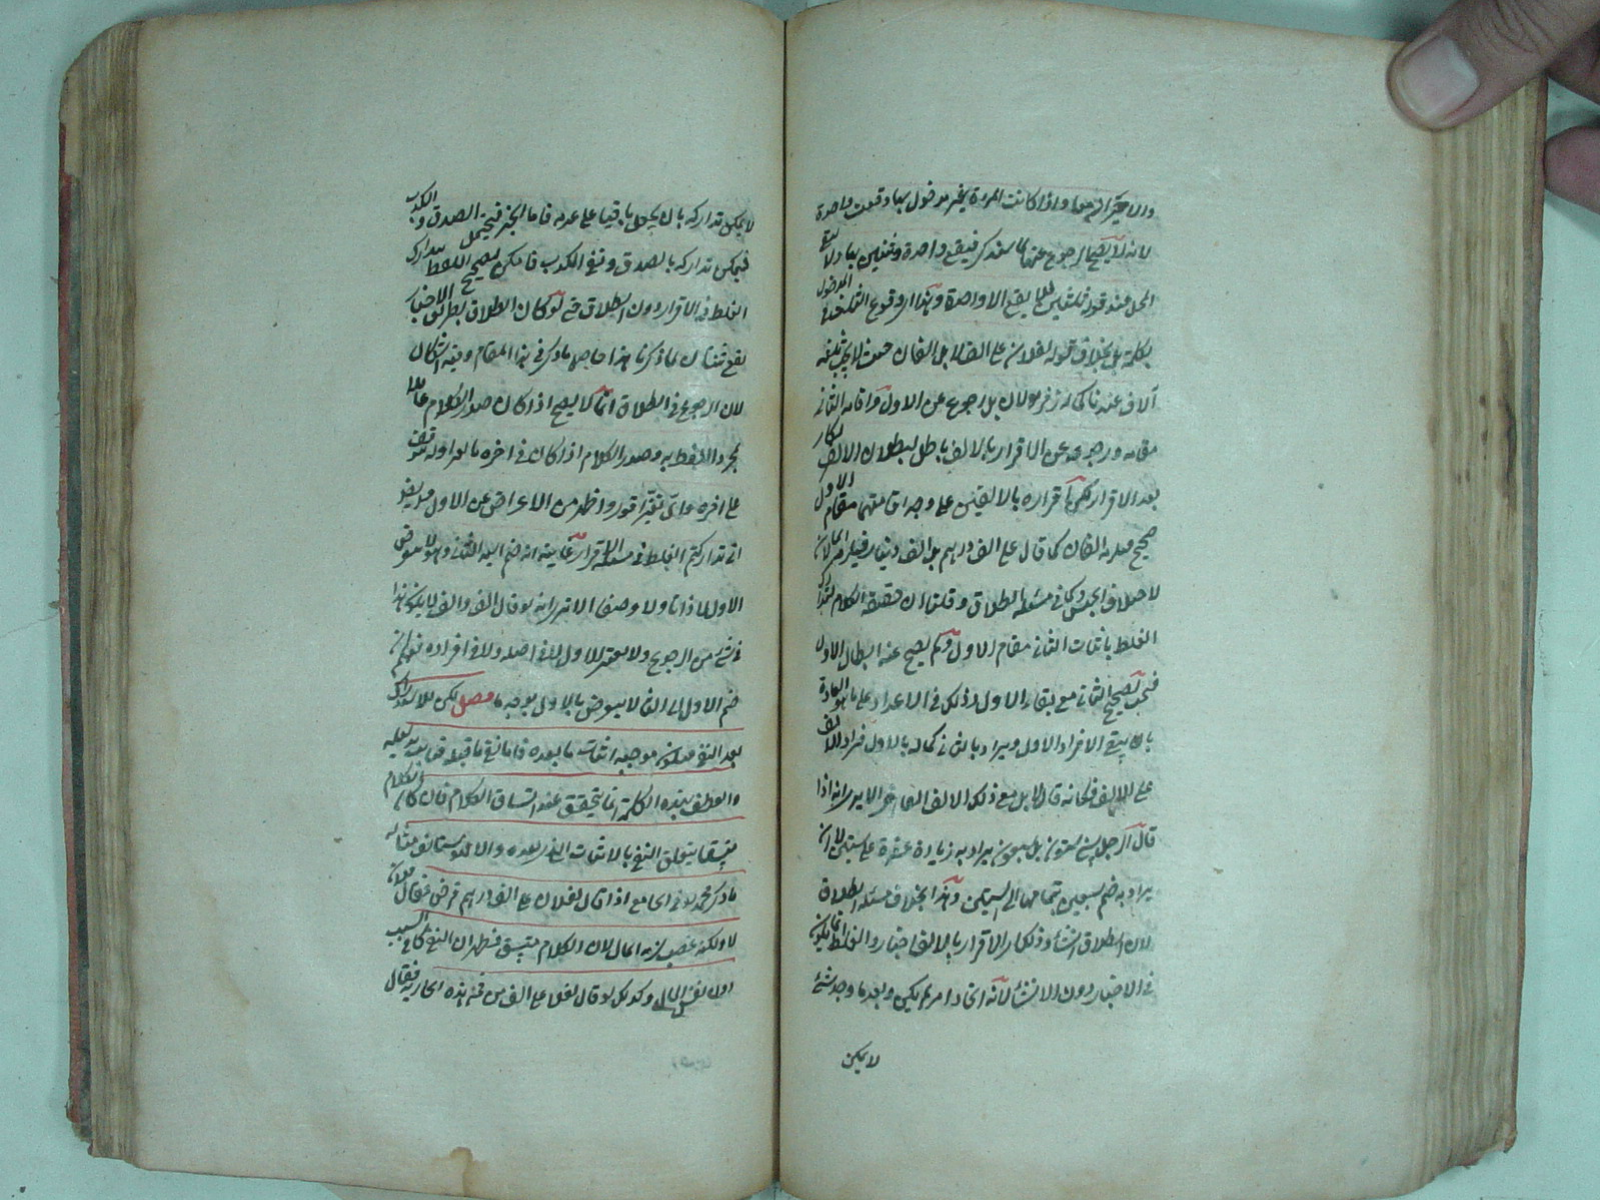 واذا كانت المرءة بغير مدخول بها وقعت واحدة
لانه لا يصح الرجوع
المحل عند قوله ثنتين فلم يقع الا واحدة وهذا
بكلمة بل بخلاف قوله لفلان على الف لا بل الفان حيث لا يجب ثلثة
آلاف عندنا لزفر لان بل رجوع عن الاول واقامة الثانى
مقامه ورجوعه عن الاقرار بالالف باطل لبطلان الانكار
بعد الاقرار لكن اقراره بالالفين على وجه اقامتهما مقام الاول
صحيح الفان كما قال على الف درهم بل الف دينار
لاختلاف الجنس وكما فى مسئلة الطلاق وقلنا ان حقيقة الكلام لتدارك
الغلط باثبات الثانى مقام الاول ولم يصح عنه ابطال الاول
تصحيح الثانى مع بقاء الاول وذلك فى الاعداد على ما هو العادة
بان ينفى الافراد الاول ويراد بالثانى كماله بالاول فزاد الالف
على الالف فكانه قال لا بل مع ذلك الالف الف آخر الا يرى انه اذا
قال الرجل سنى ستون بل سبعون يراد به زيادة عشرة على ستين لا ان
يراد به ضم سبعين بتمامها الى الستين وهذا بخلاف مسئلة الطلاق
لان الطلاق انشاء وذلك الاقرار بالالف اخبار والغلط انما يكون
فى الاخبار دون الانشاء لانه ايجاد امر لم يكن وبعد ما وجد شئ
لا يمكن
لا يمكن تداركه بان يجعل باقيا على عدمه فاما الخبر فيحتمل الصدق والكذب
فيمكن تداركه بالصدق ونفى الكذب فامكن تصحيح اللفظ بتدارك
الغلط فى الاقرار دون الطلاق حتى لو كان الطلاق بطريق الاخبار
يقع ثنتان لما ذكرنا هذا حاصل ما ذكر فى هذا المقام وفيه اشكال
لان الرجوع فى الطلاق انما لا يصح اذا كان صدر الكلام عاملا
بمجرد التلفظ به وصدر الكلام اذا كان فى آخره ما يغير اوله توقف
على آخره من الاعراض عن الاول
تداركتم الغلط فى مسئلة الاقرار غايته انه ضم اليه الثانى
الاول ذاتا ولا وصفا الا ترى انه لو قال الف والف لا يكون هذا
فى شئ من الرجوع ولا يغير الاول لا فى اصله ولا فى افراده
ضم الاول الى الثانى لا يتعرض بالاول بوجه ما فصل لكن للاستدراك
بعد النفى موجبه اثبات ما بعده فاما نفى ما قبله فثابت بدليله
والعطف بهذه الكلمة انما يتحقق عند اتساق الكلام فان كان الكلام
متسقا يتعلق النفى بالاثبات الذى بعده والا فهو مستانف مثاله
ما ذكر محمد فى الجامع اذا قال لفلان على الف درهم قرض فقال فلان
لا ولكنه غصب لزمه المال لان الكلام متسق فظهر ان النفى كان فى السبب
دون نفس المال وكذلك لو قال لفلان على الف من ثمن هذه الجارية فقال